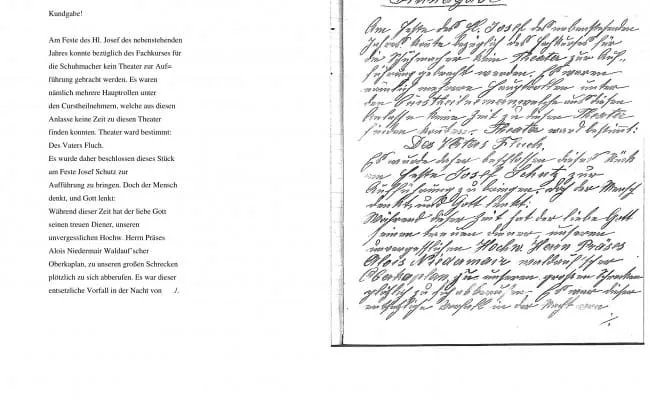 Kundgabe!
Am Feste des Hl. Josef des nebenstehenden
Jahres konnte bezüglich des Fachkurses für
die Schuhmacher kein Theater zur Auf=
führung gebracht werden. Es waren
nämlich mehrere Hauptrollen unter
den Curstheilnehmern, welche aus diesen
Anlasse keine Zeit zu diesen Theater
finden konnten. Theater ward bestimmt:
Des Vaters Fluch.
Es wurde daher beschlossen dieses Stück
am Feste Josef Schutz zur
Aufführung zu bringen. Doch der Mensch
denkt, und Gott lenkt:
Während dieser Zeit hat der liebe Gott
seinen treuen Diener, unseren
unvergesslichen Hochw. Herrn Präses
Alois Niedermair Waldauf'scher
Oberkaplan, zu unseren großen Schrecken
plötzlich zu sich abberufen. Es war dieser
entsetzliche Vorfall in der Nacht von ./.
Kundgabe!
Am Feste des Hl. Josef des nebenstehenden
Jahres konnte bezüglich des Fachkurses für
die Schuhmacher kein Theater zur Auf=
führung gebracht werden. Es waren
nämlich mehrere Hauptrollen unter
den Curstheilnehmern welche aus diesen
Anlasse keine Zeit zu diesen Theater
finden konnten. Theater ward bestimmt:
Des Vaters Fluch.
Es wurde daher beschlossen dieses Stück
am Feste Josef Schutz zur
Aufführung zu bringen. Doch der Mensch
denkt, und Gott lenkt:
Während dieser Zeit hat der liebe Gott
seinen treuen Diener, unseren
unvergesslichen Hochw. Herrn Präses
Alois Niedermair Waldauf'scher
Oberkaplan, zu unseren großen Schrecken
plötzlich zu sich abberufen. Es war dieser
entsetzliche Vorfall in der Nacht von
./.